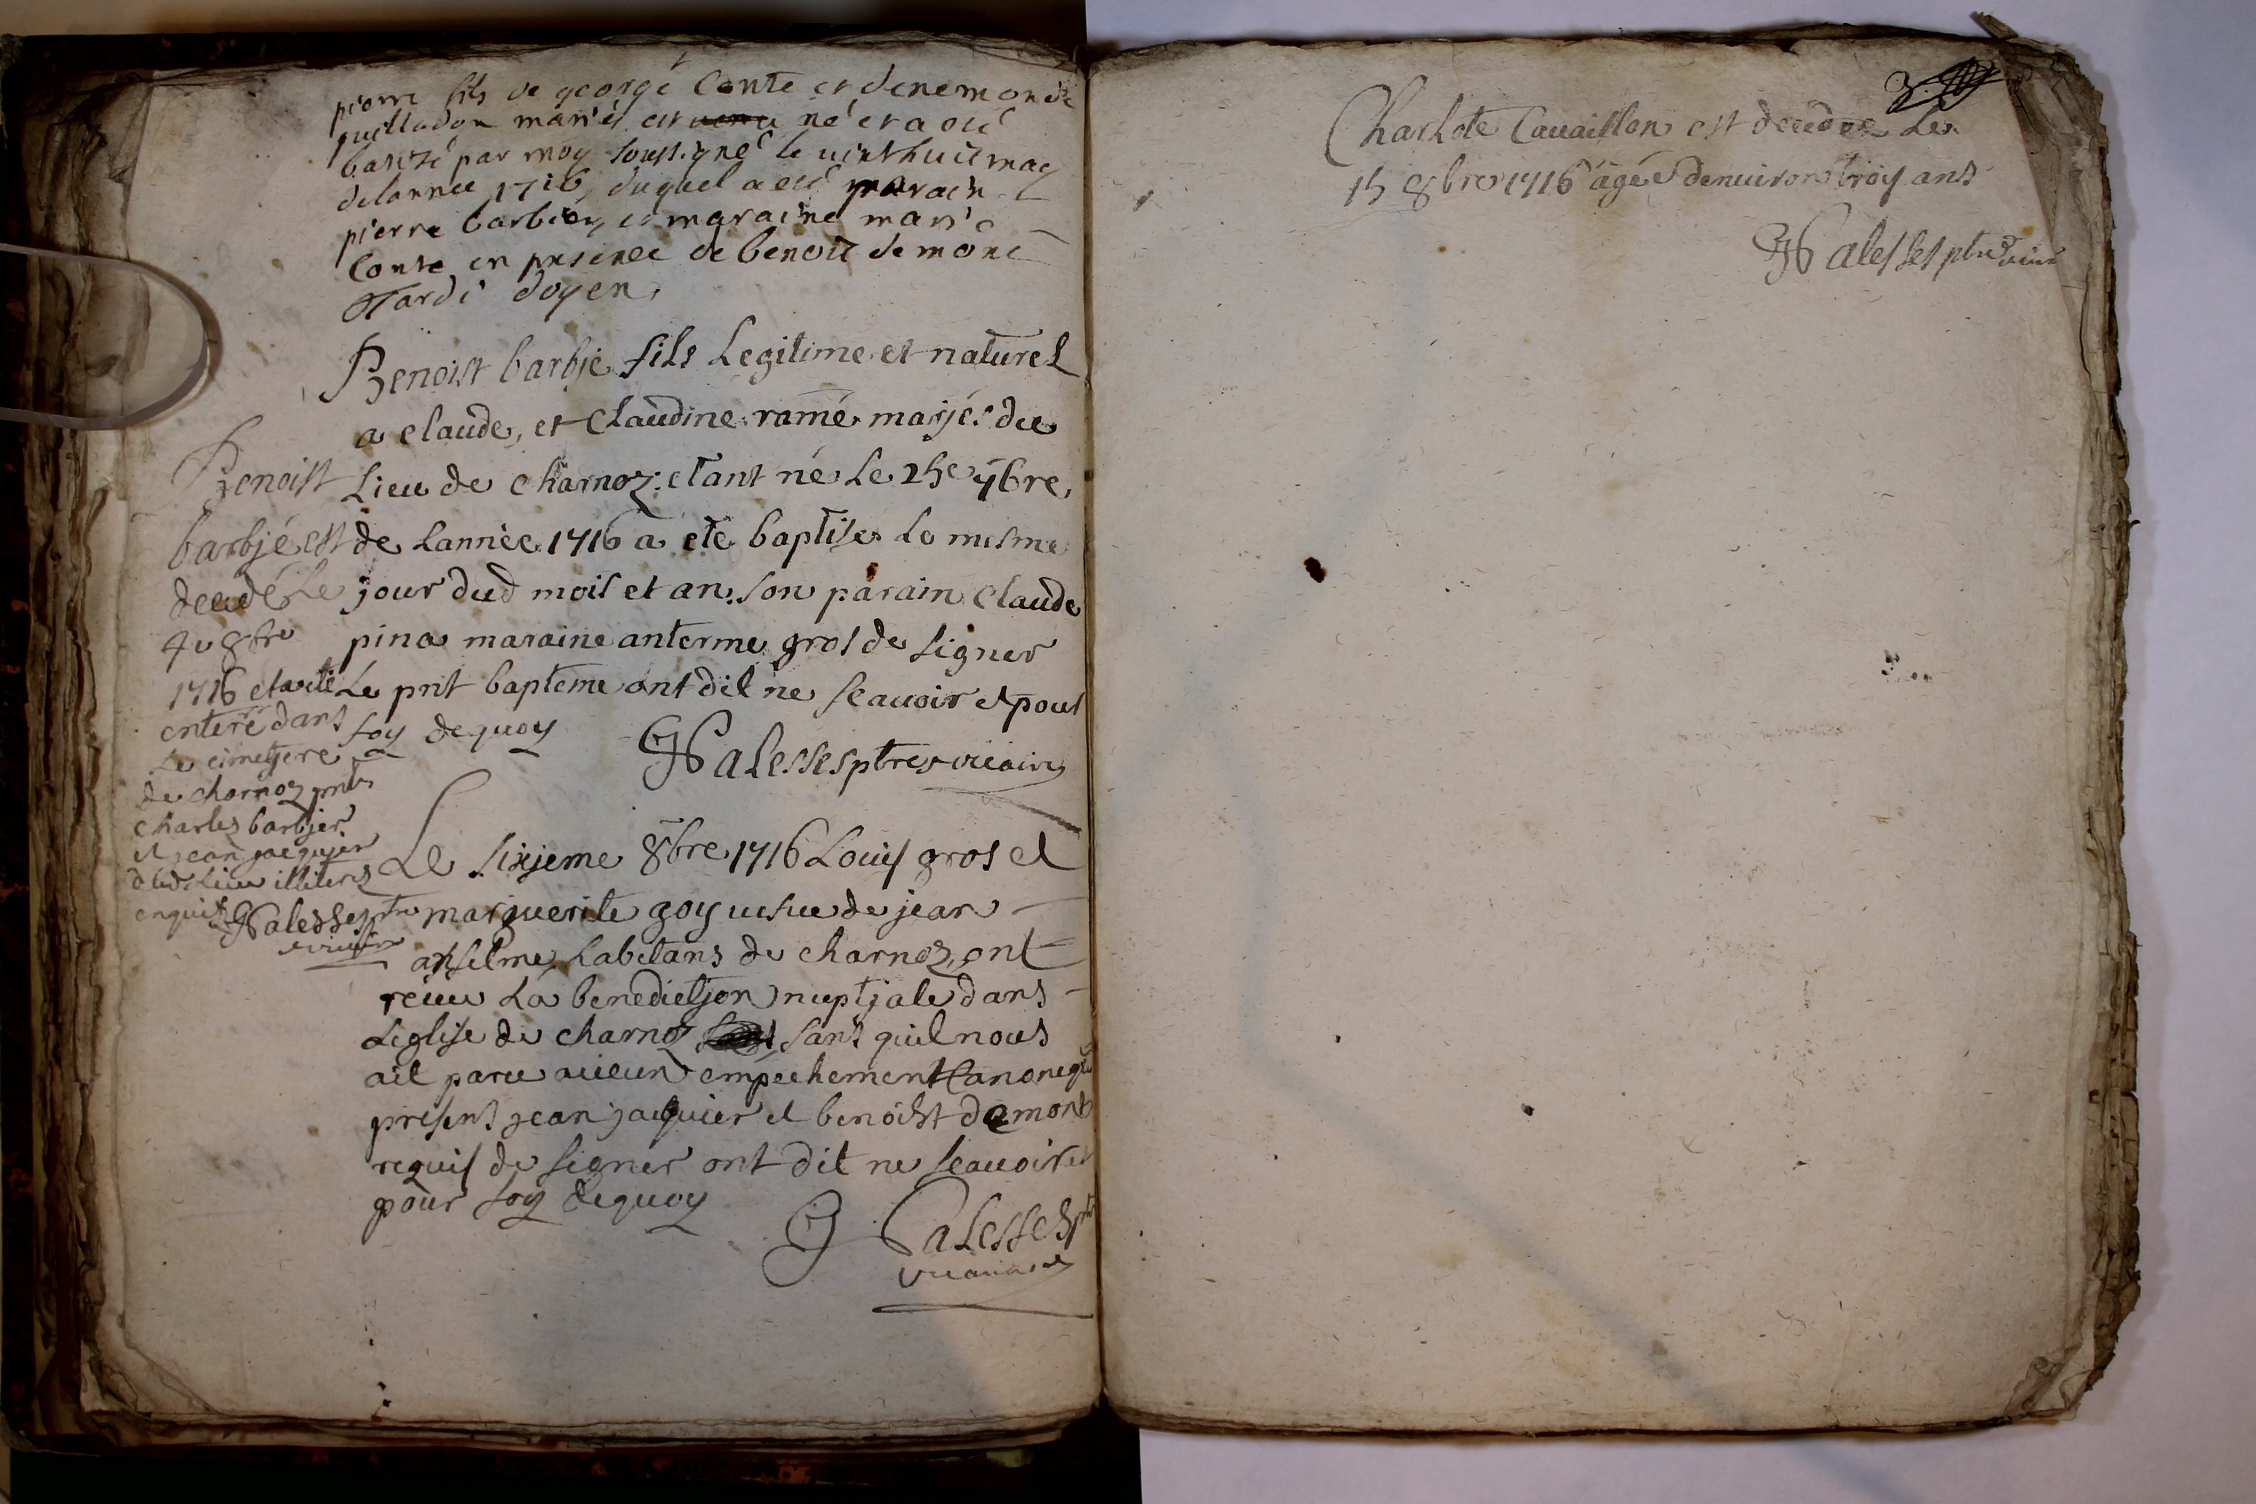 pierre fils de george Conte et denemonde
guilladon mariés est né et a oté
batisé par moy soussigné le vint huit may
de lannée 1716, duquel a eté parain
pierre barbier, et maraine marie
Conte en presence de benoit demont
Tardi doyen,
Benoist barbje fils Legitime et naturel
a claude, et Claudine ramé marjés du
Lieu de charnoz etant né Le 25e 7bre,
de Lannèe 1716 a eté baptise Le mesme
jour dud mois et an. son parain Claude
pina maraine anterme gros de signer
Le prnt bapteme ont dit ne scavoir et pour
foy dequoy
GPalesses ptre vicaire
Benoist
barbjé est
decedé Le
4e 8bre
1716 et a eté
enteré dans
Le cimetjere
de charnoz pnts
Charles barbjer
et jean jacqujer
dud Lieu illiterés
enquis GPalesses ptre
vicaire
Le sixjeme 8bre 1716 Louis gros et
marguerite goy vefve de jean
anselme, habitans de charnoz, ont
receu La benedictjon nuptjale dans
Leglise de charnoz sans quil nous
ait paru aucun empechement Canoneque
presens jean jacquier et benoist demont
requis de signer ont dit ne scavoir et
pour foy dequoy
G Palesses ptre
vicaire
Charlote Cavaillon est decedee Le
15 8bre 1716 âgée denuiron troy ans
GPalesses ptre vicaire